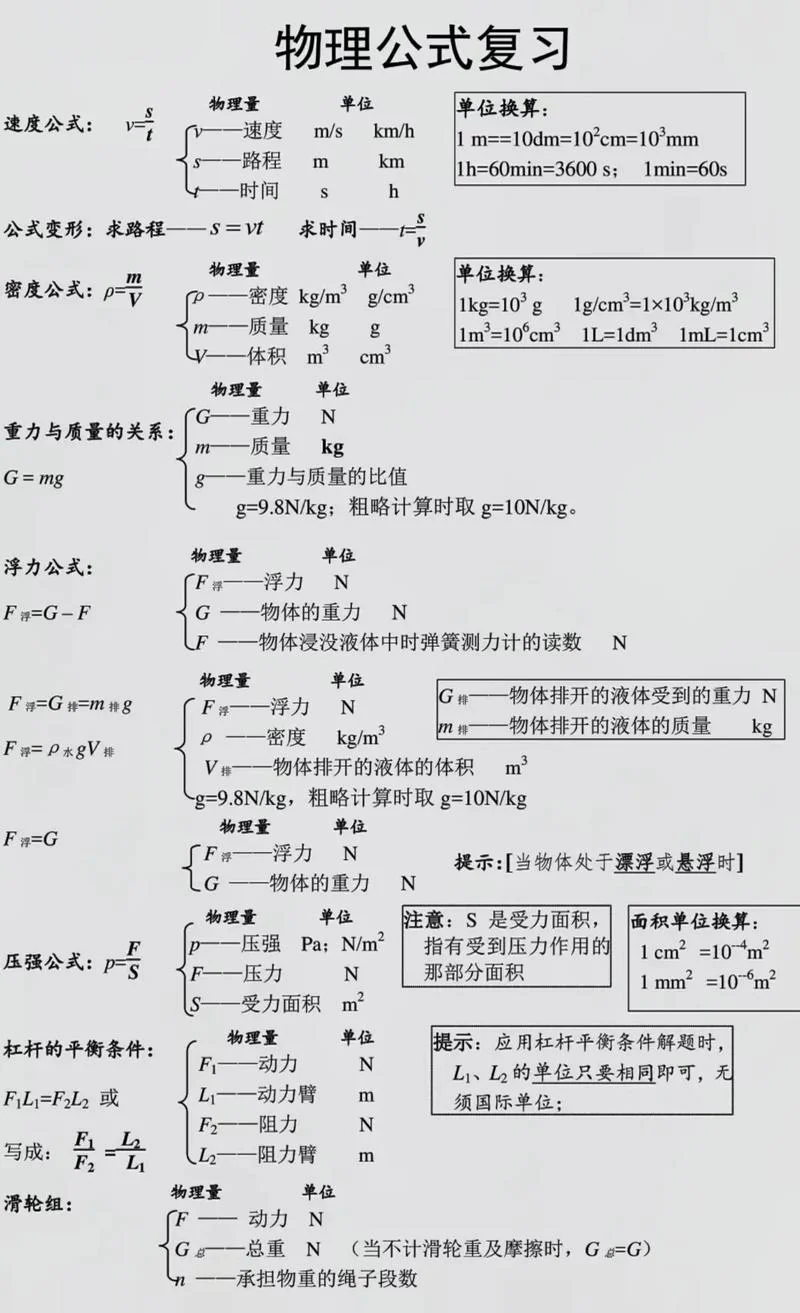 物理公式复习
物理量 单位
速度公式： v=s/t
v——速度 m/s km/h
s——路程 m km
t——时间 s h
单位换算：
1 m==10dm=10²cm=10³mm
1h=60min=3600 s； 1min=60s
公式变形：求路程——s＝vt 求时间——t=s/v
物理量 单位
密度公式：ρ=m/V
ρ——密度 kg/m³ g/cm³
m——质量 kg g
V——体积 m³ cm³
单位换算：
1kg=10³ g 1g/cm³=1×10³kg/m³
1m³=10⁶cm³ 1L=1dm³ 1mL=1cm³
物理量 单位
重力与质量的关系：
G＝mg
G——重力 N
m——质量 kg
g——重力与质量的比值
g=9.8N/kg；粗略计算时取 g=10N/kg。
浮力公式：
F浮=G – F
物理量 单位
F浮——浮力 N
G ——物体的重力 N
F ——物体浸没液体中时弹簧测力计的读数 N
F浮=G排=m排g
F浮=ρ水gV排
物理量 单位
F浮——浮力 N
ρ ——密度 kg/m³
V排——物体排开的液体的体积 m³
g=9.8N/kg，粗略计算时取 g=10N/kg
G排——物体排开的液体受到的重力 N
m排——物体排开的液体的质量 kg
F浮=G
物理量 单位
F浮——浮力 N
G ——物体的重力 N
提示:[当物体处于漂浮或悬浮时]
物理量 单位
压强公式：p=F/S
p——压强 Pa；N/m²
F——压力 N
S——受力面积 m²
注意：S 是受力面积，
指有受到压力作用的
那部分面积
面积单位换算：
1 cm² =10⁻⁴m²
1 mm² =10⁻⁶m²
杠杆的平衡条件：
F₁L₁=F₂L₂ 或
写成：F₁/F₂=L₂/L₁
物理量 单位
F₁——动力 N
L₁——动力臂 m
F₂——阻力 N
L₂——阻力臂 m
提示：应用杠杆平衡条件解题时，
L₁、L₂的单位只要相同即可，无
须国际单位；
滑轮组：
物理量 单位
F —— 动力 N
G总——总重 N （当不计滑轮重及摩擦时，G总=G）
n ——承担物重的绳子段数